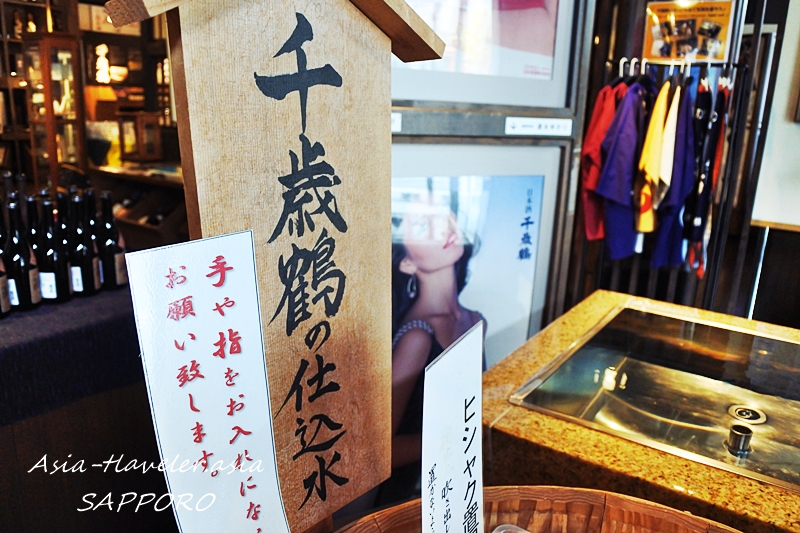 千歳鶴の仕込水
手や指をお入れにな
お願い致します。
ヒシャク置
吹き出し
日本酒 千歳鶴
Asia-Havelerasia
SAPPORO